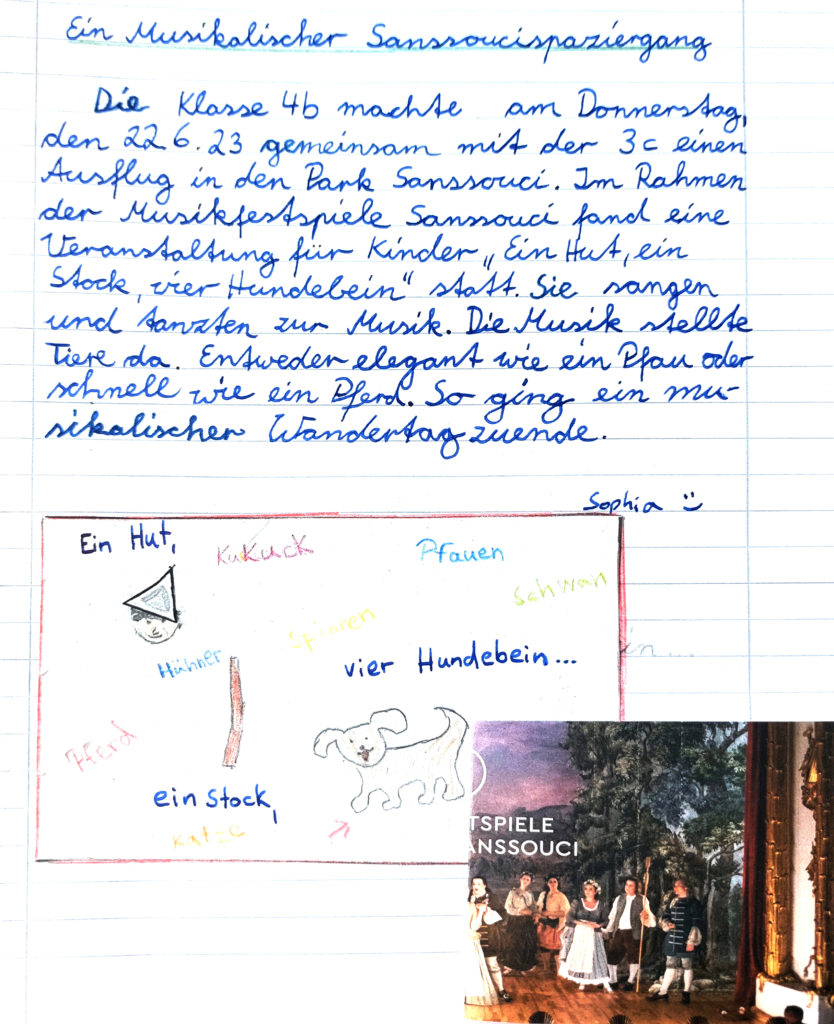 Ein Musikalischer Sanssoucispaziergang
Die Klasse 4b machte am Donnerstag,
den 22.6.23 gemeinsam mit der 3c einen
Ausflug in den Park Sanssouci. Im Rahmen
der Musikfestspiele Sanssouci fand eine
Veranstaltung für Kinder „Ein Hut, ein
Stock, vier Hundebein“ statt. Sie sangen
und tanzten zur Musik. Die Musik stellte
Tiere da. Entweder elegant wie ein Pfau oder
schnell wie ein Pferd. So ging ein mu-
sikalischer Wandertag zuende.
Sophia :)
Ein Hut,
Kukuck
Pfauen
Schwan
Spinnen
Hühner
vier Hundebein...
in...
Pferd
ein Stock,
Katze
TSPIELE
ANSSOUCI